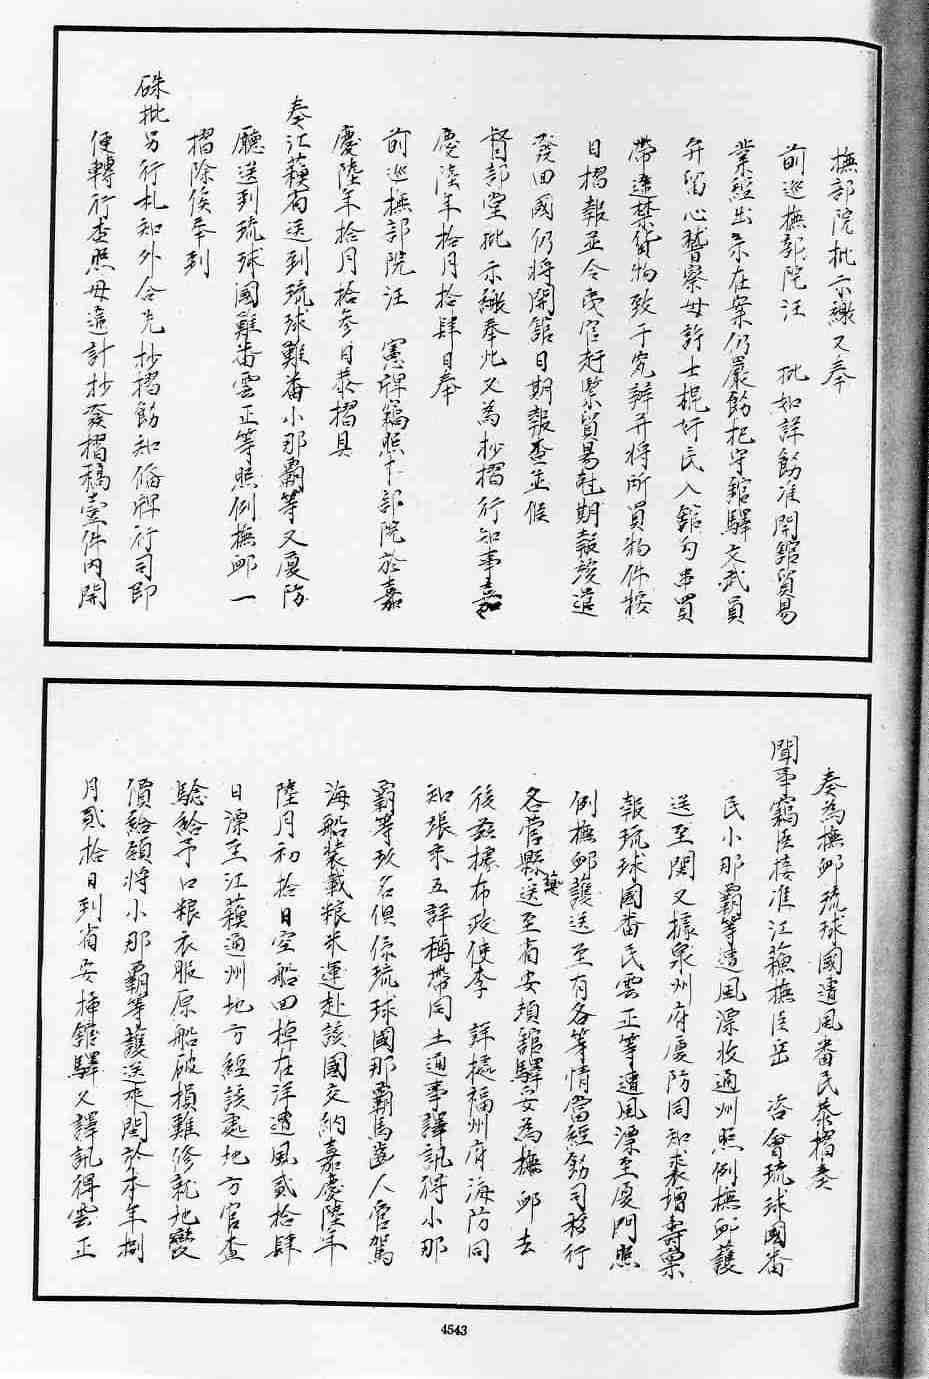 撫部院批示繳又奉
前巡撫部院汪　批如詳飭准開舘貿易
業經出示在案仍嚴飭把守舘驛文武員
弁留心稽察毋許土棍奸民入舘勾串買
帶違禁貨物致干究辦并將所買物件按
日摺報並令民官赶緊貿易牡期報竣遣
發回國仍將開舘日期報查並候
督部堂批示繳奉此又為抄摺行知事嘉
慶陸年拾月拾肆日奉
前巡撫部院汪　憲牌竊照本部院於嘉
慶陸年拾月拾參日恭摺具
奏江蘓省送到琉球難畨小那覇等又廈防
廳送到琉球國難畨雲正等照例撫䘏一
摺除俟奉到
硃批另行札知外合先抄摺飭知偹牌行司即
便轉行查照毋違計抄發摺稿壹件內開
奏為撫䘏琉球國遭風畨民恭摺奏
聞事竊臣接准江蘓撫臣岳　咨會琉球國畨
民小那覇等遭風漂收通州照例撫䘏護
送至閩又據泉州府廈防同知裘增壽稟
報琉球國畨民雲正等遭風漂至廈門照
例撫䘏護送至省各等情當經飭司移行
各營縣護送至省安頓舘驛妥為撫䘏去
後茲據布政使李　詳據福州府海防同
知張采五詳稱帶同土通事譯訊得小那
覇等玖名俱係琉球國那覇馬齒人官駕
海船裝載粮米運赴該國交納嘉慶陸年
陸月初拾日空船回棹在洋遭風貳拾肆
日漂至江蘓通州地方經該處地方官查
驗給予口粮衣服原船破損難修就地變
價給領將小那覇等護送來閩於本年捌
月貳拾日到省安揷舘驛又譯訊得雲正
4543